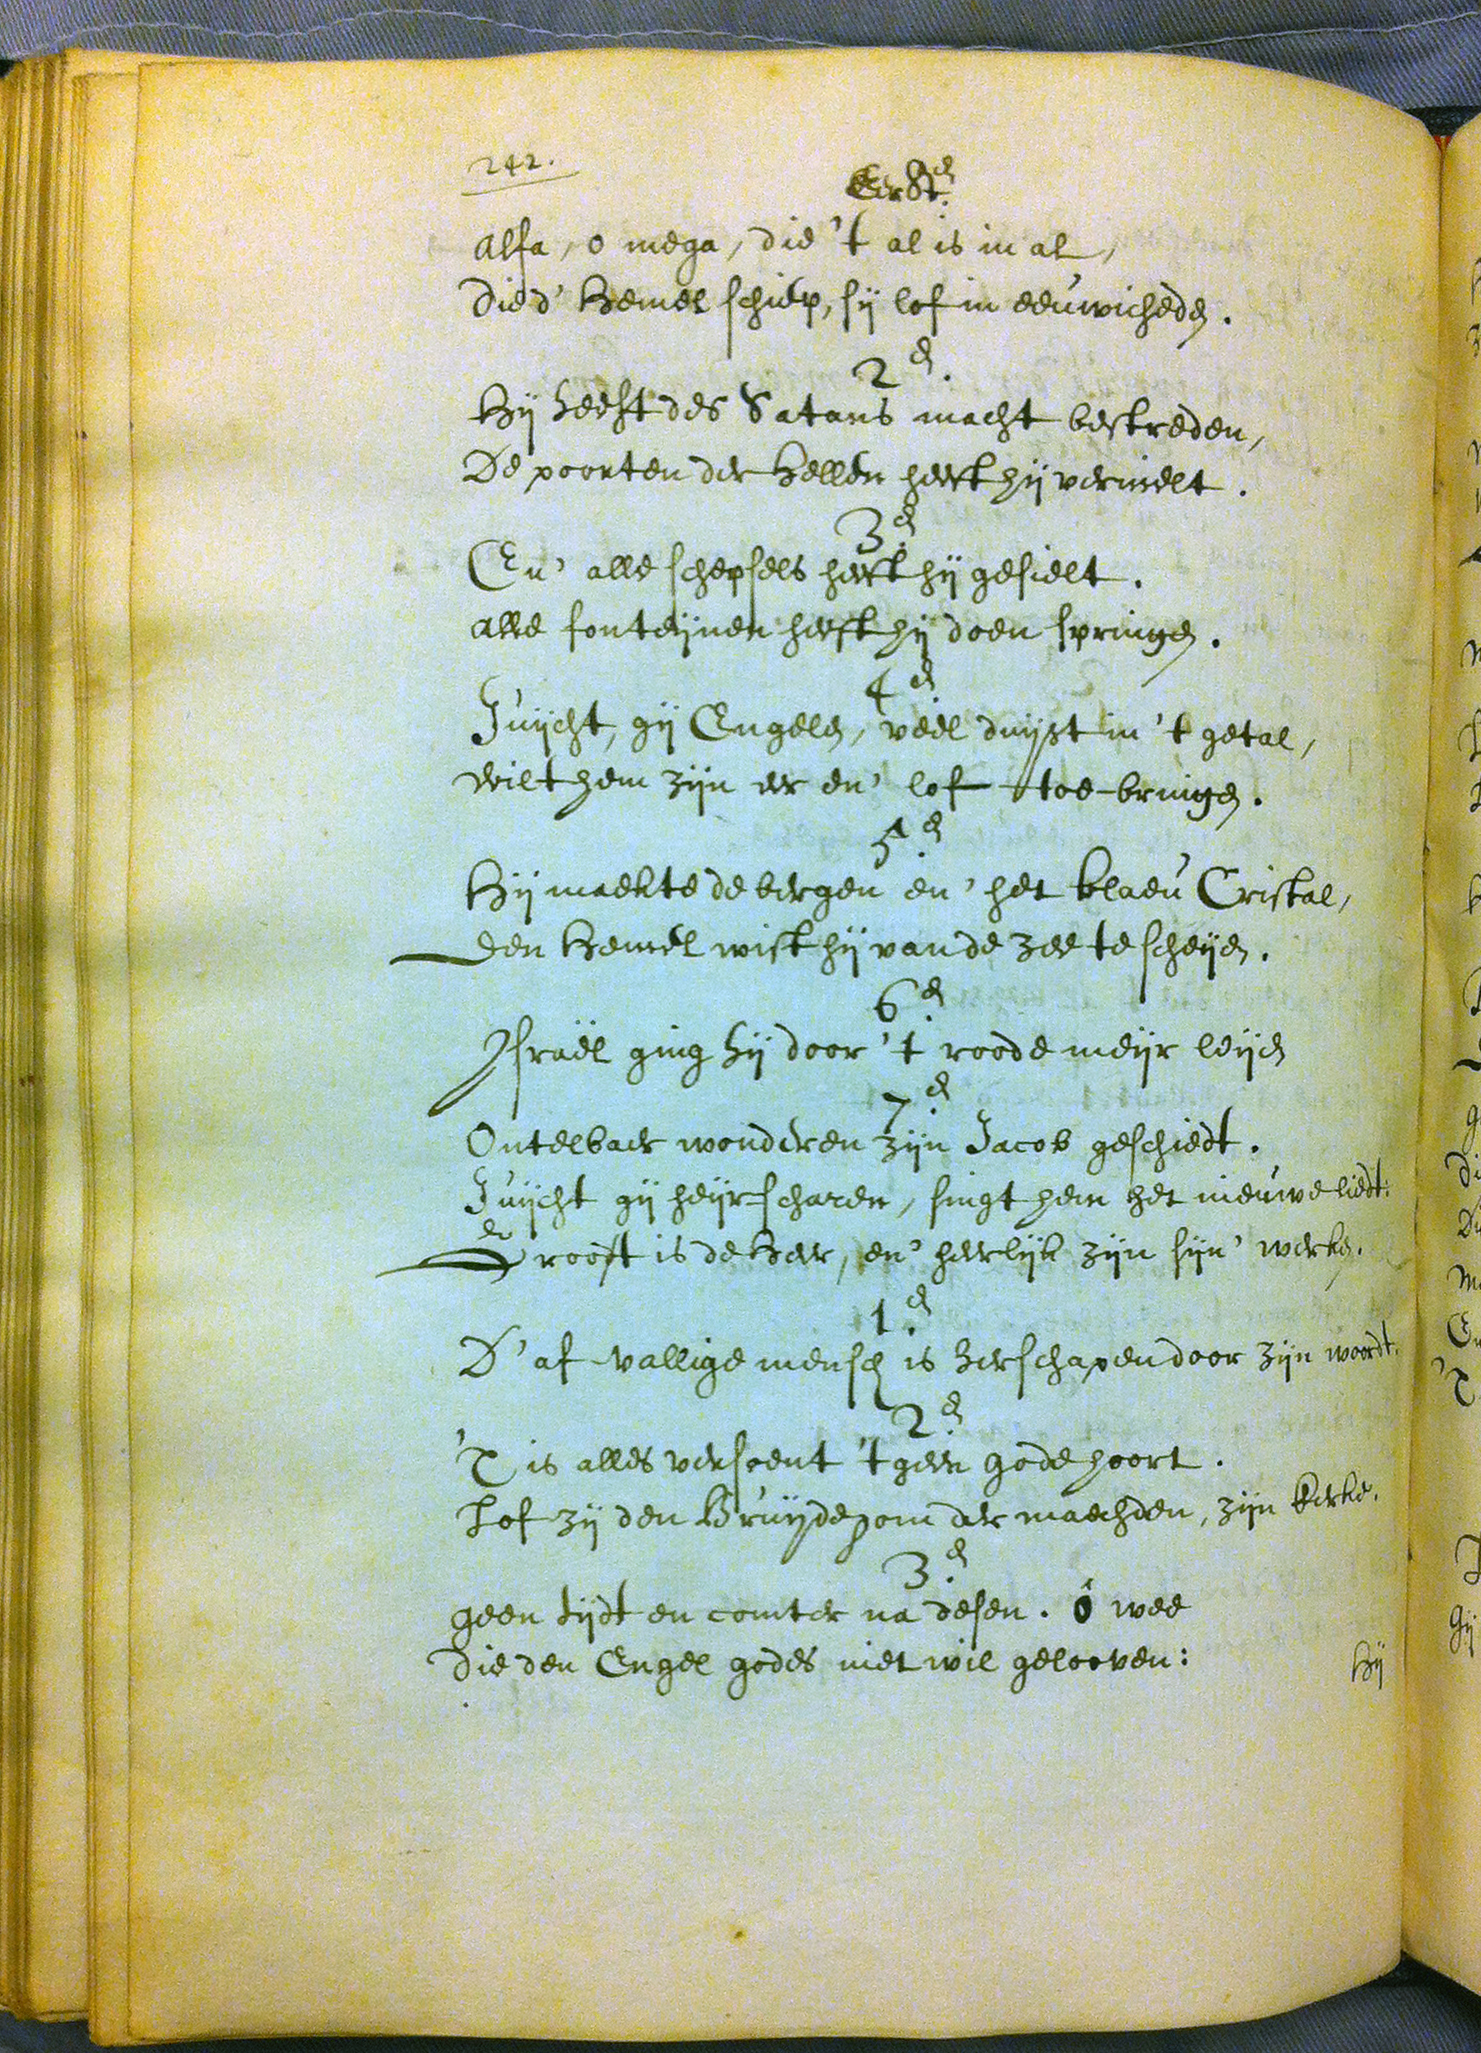 242.
Eerst en.
Alfa, o mega, die 't al is in al,
Die d' hemel schiep, sij lof in eeuwicheden.
2 en.
Hij heeft des Satans macht bestreden,
De poorten der hellen heeft hij vernielt.
3 en.
En' alle schepsels heeft hij gesielt.
Alle fonteijnen heeft hij doen springen.
4 en.
Juijcht, gij Engelen, veel duijst in 't getal,
Wilt hem zijn eer en' lof toe-bringen.
5 en.
Hij maekte de bergen en' het klaeu Cristal,
Den hemel wist hij van de zee te scheijen.
6 en.
Israël ging hij door 't roode meijr leijen
7 en.
Ontelbaer wonderen zijn Jacob geschiedt.
Juijcht gij heijr-scharen, singt hem het nieuwe liedt:
Groot is de heer, en' heerlijk zijn sijn' werken.
1 en.
D' af-vallige mensch is herschapen door zijn woordt.
2 en.
'T is alles versoent 't geen gode hoort.
Lof zij den Bruijdegom der maechden, zijn kerke.
3 en.
Geen tijdt en comter na desen. ó wee
Die den Engel godes niet wil gelooven:
Hij